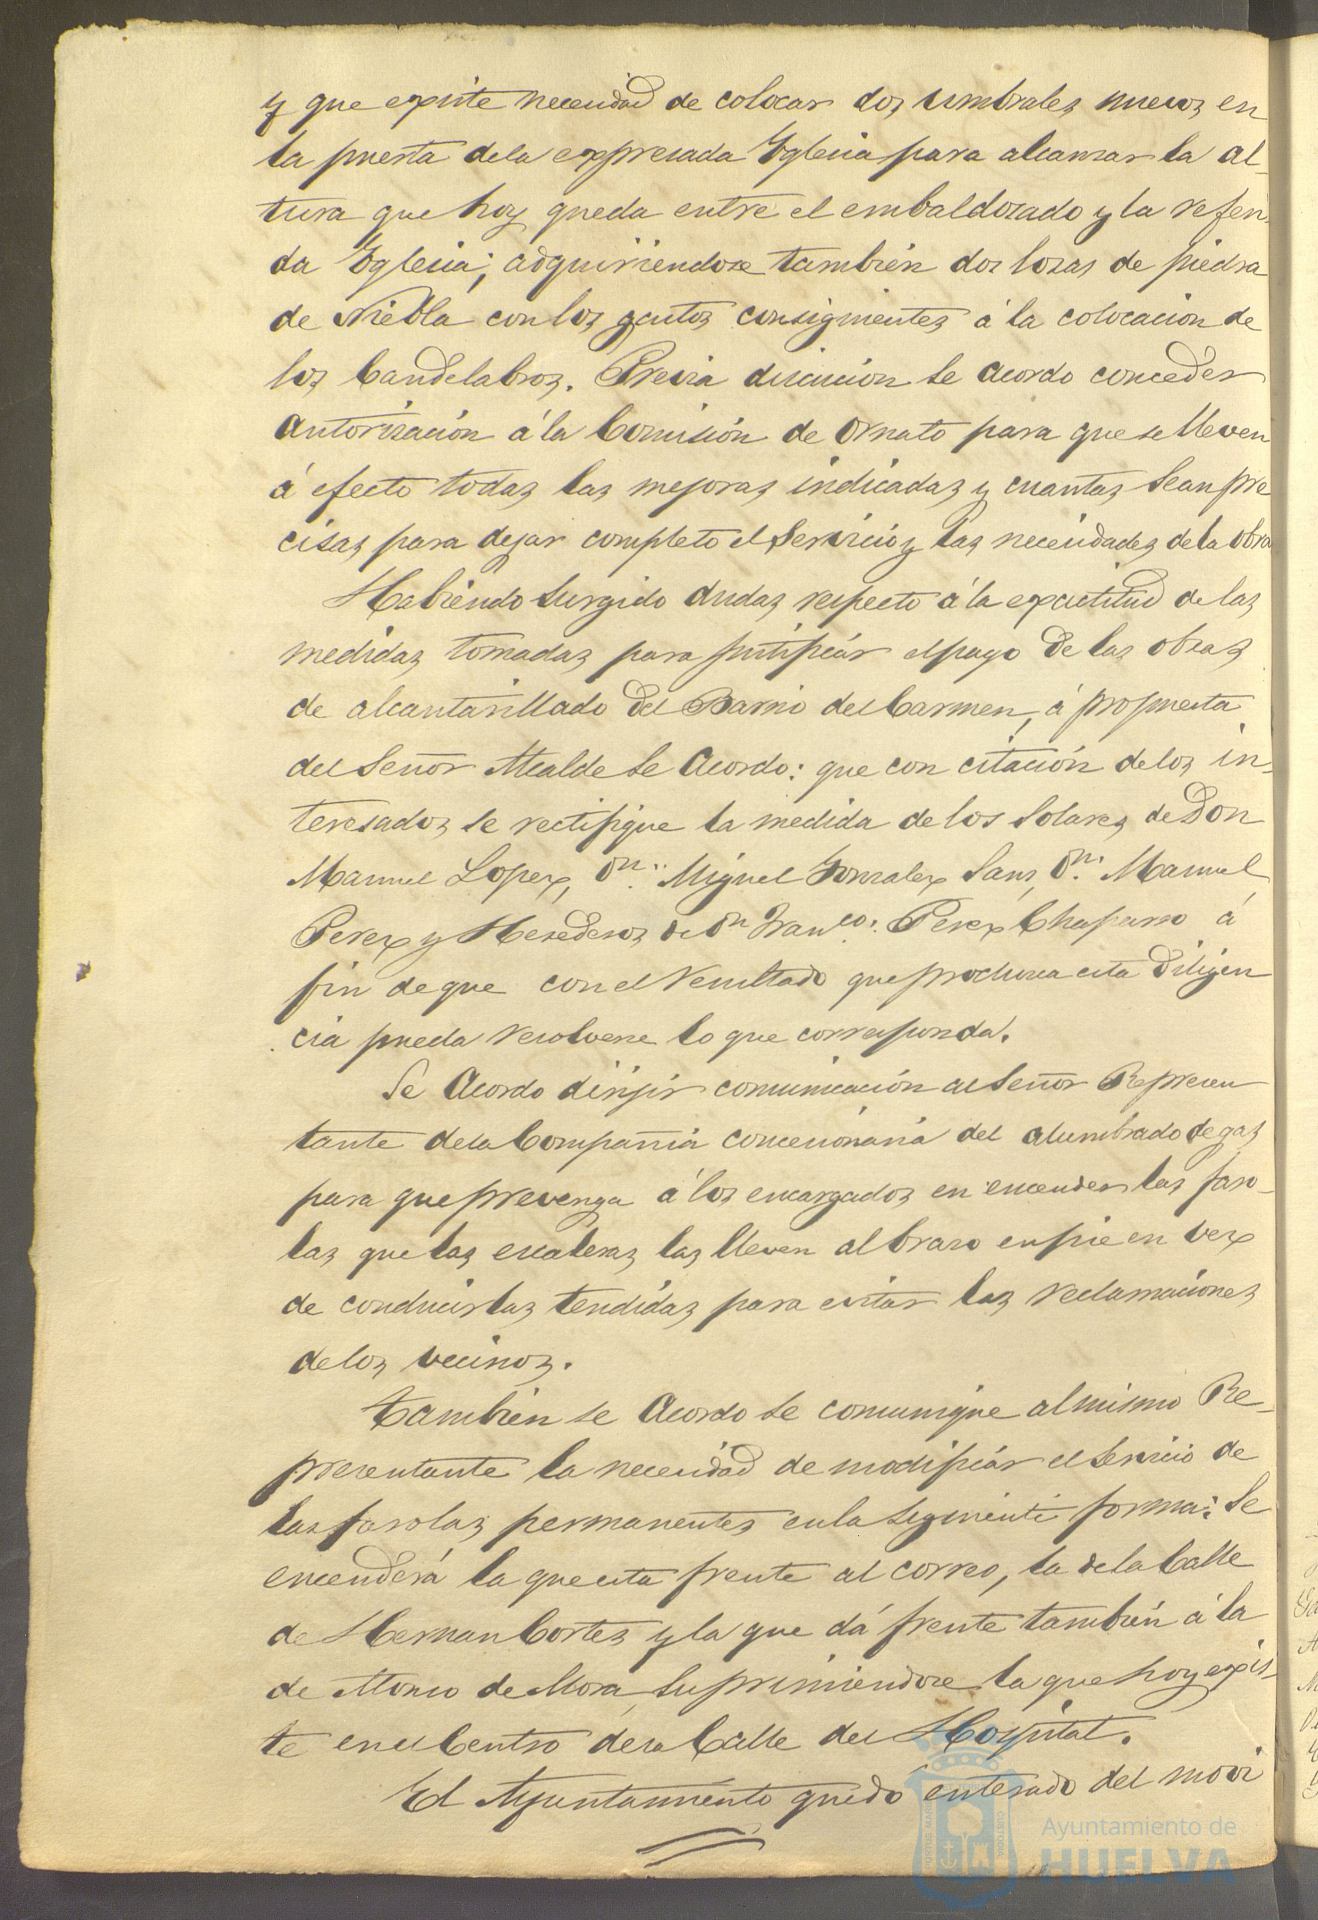 y que existe necesidad de colocar dos umbrales nuevos en
la puerta dela expresada Yglesia para alcanzar la al-
tura que hoy queda entre el embaldozado y la referi-
da Yglesia; adquiriendose también dos lozas de piedra
de Niebla con los gastos consiguientes á la colocación de
los Candelabros. Previa discución se acordo conceder
autorización á la Comisión de Ornato para que se lleven
á efecto todas las mejoras indicadas y cuantas sean pre
cisas para dejar completo el servicio y las necesidades de la obra
Habiendo surgido dudas respecto á la exactitud de las
medidas tomadas para justificár el pago de las obras
de alcantarillado del Barrio del Carmen, á propuesta
del Señor Alcalde se acordo: que con citación delos in-
teresados se rectifique la medida de los solares de Don
Manuel Lopez, Dn. Miguel Gonzalez Sanz, Dn. Manuel
Perez y Herederos de Dn Franco. Perez Chaparro á
fin deque con el resultado que produzca esta diligen
cia pueda resolverse lo que corresponda.
Se acordo dirijir comunicación al Señor Represen
tante dela Compañia concesionaria del alumbrado de gas
para que prevenga á los encargados en encender las faro-
las que las escaleras las lleven al brazo en pie en vez
de conducirlas tendidas para evitar las reclamaciones
delos vecinos.
También se acordo se comunique al mismo Re-
presentante la necesidad de modificár el servicio de
las farolas permanentes en la siguiente forma: Se
encenderá la que esta frente al correo, la dela Calle
de Hernan Cortes y la que dá frente también á la
de Alonso de Mora, suprimiendose la que hoy exis-
te en el Centro dela Calle del Hospital.
El Ayuntamiento quedó enterado del movi
Ayuntamiento de
HUELVA